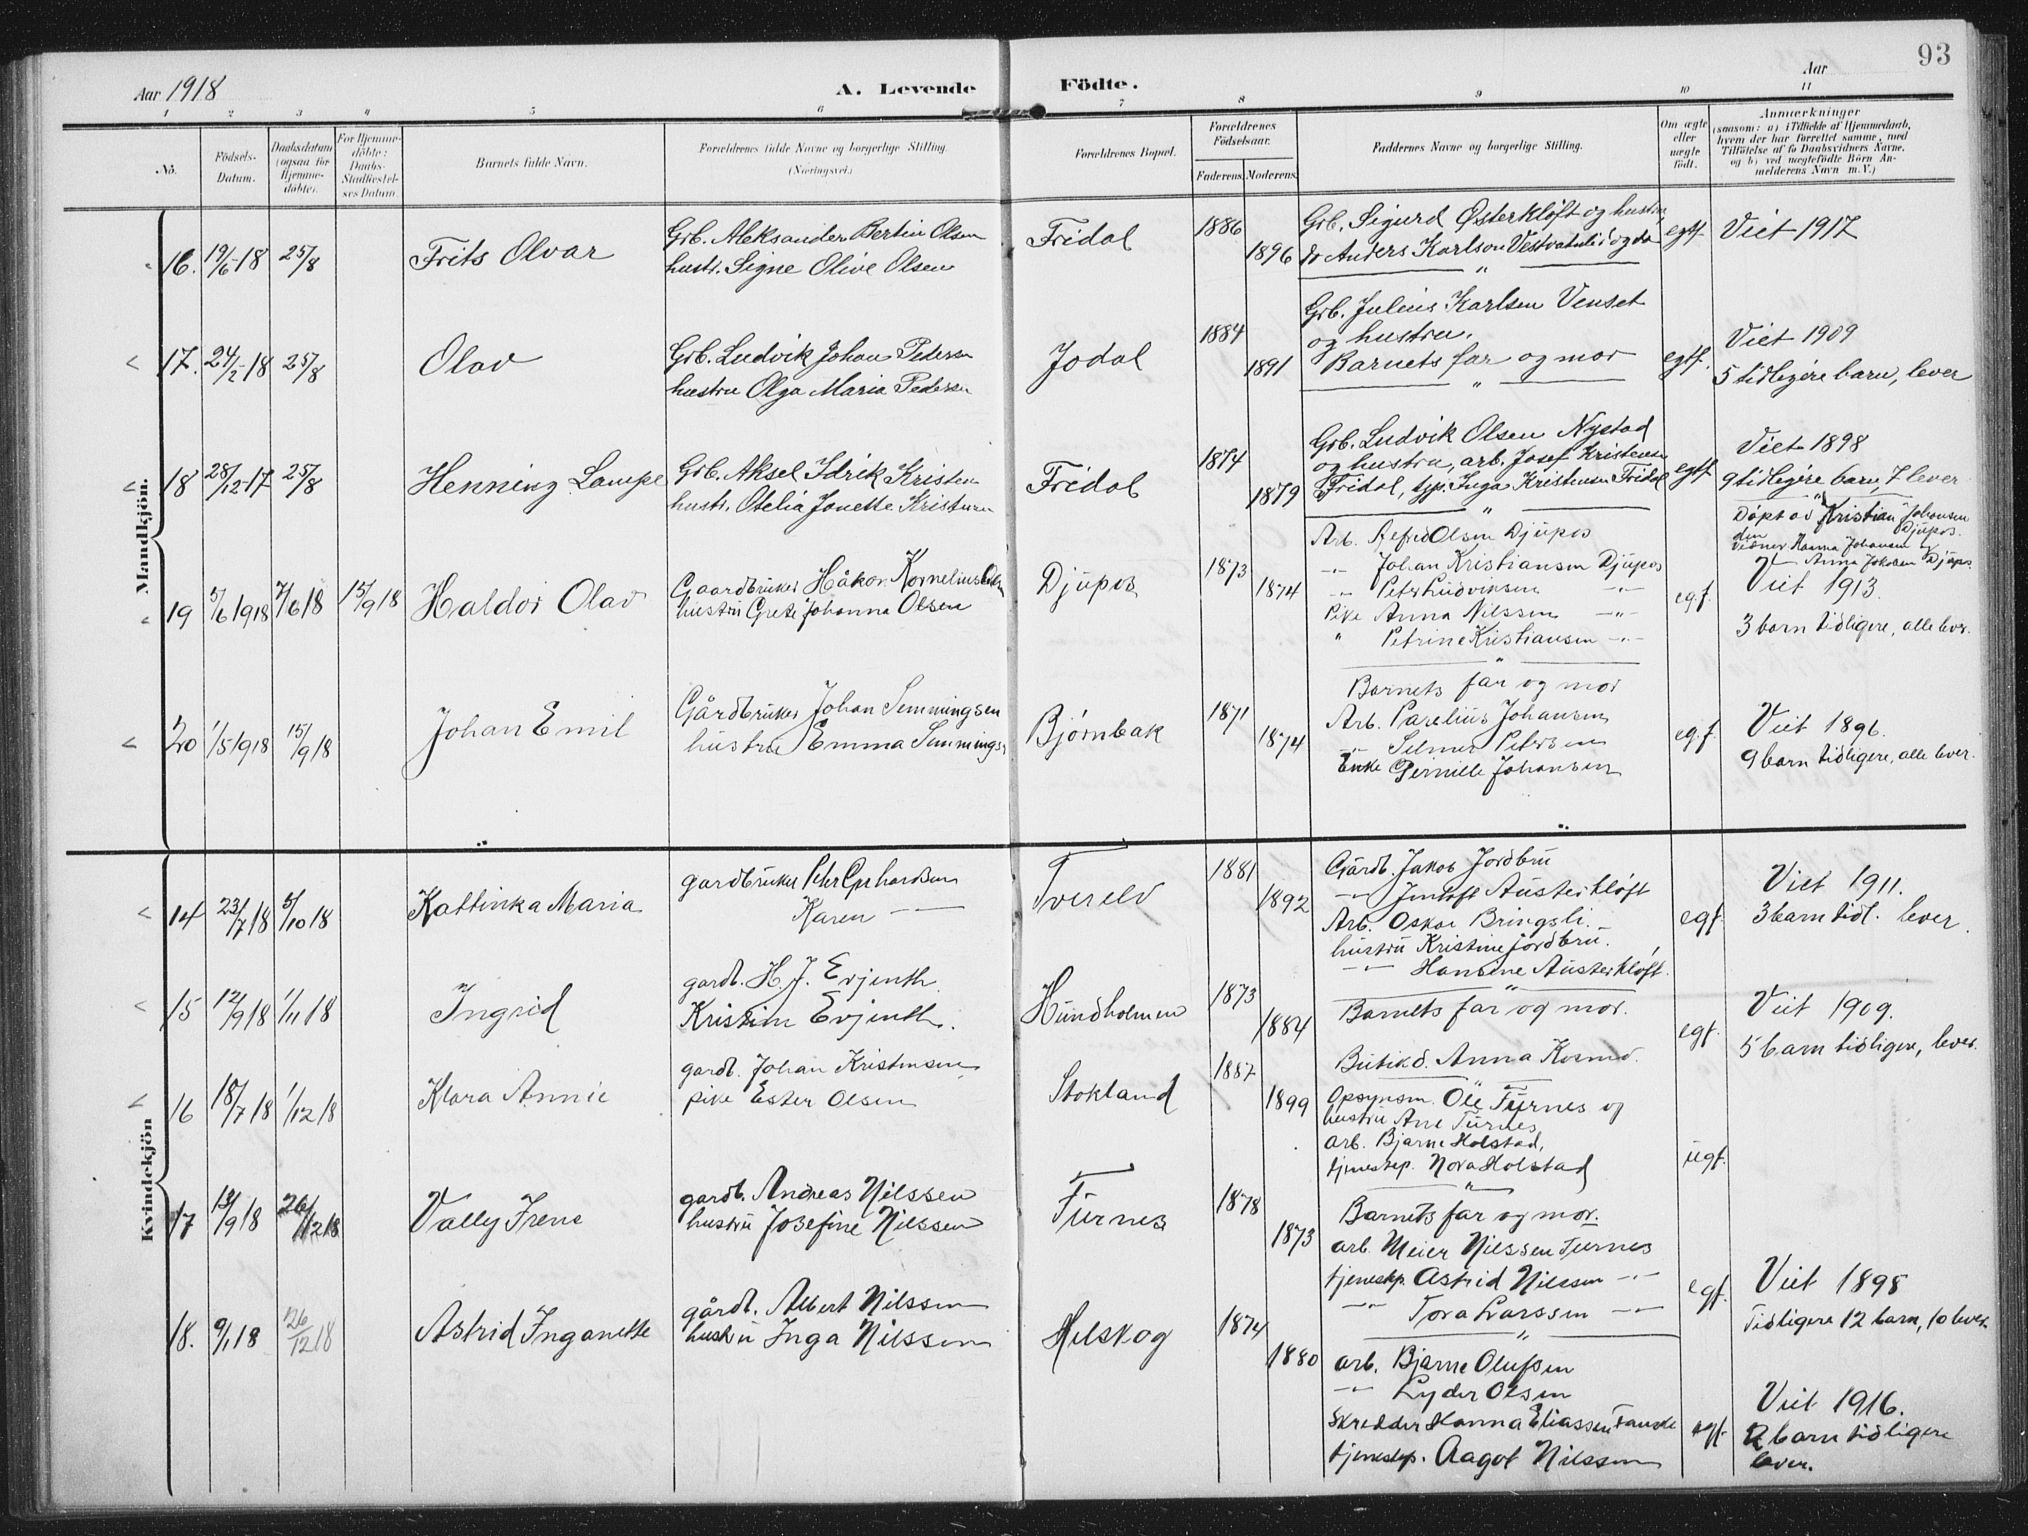 93
Aar 1918
A. Levende
Födte.
Aar
1 2 3 4 5 6 7 8 9 10 11
No.
Födsels-Datum.
Daabsdatum (ogsaa for Hjemmedöbte).
For Hjemmedöbte: Daabs Stadfæstelses Datum.
Barnets fulde Navn.
Forældrenes fulde Navne og borgerlige Stilling. (Næringsvei.)
Forældrenes Bopæl.
Forældrenes Födselsaar.
Faderens. Moderens.
Faddernes Navne og borgerlige Stilling.
Om ægte eller uægte födt.
Anmærkninger (saasom: a) i Tilfælde af Hjemmedaab, hvem der har forrettet samme, med Tilföielse af to Daabsvidners Navne, og b) ved uægtefödte Börn Anmelderens Navn m. V.)
Mandkjön.
16. 19/6-18 25/8
Frits Olvar
Grb. Aleksander Bertin Olsen
hustr. Signe Olive Olsen
Fridal
1886
1896
Grb. Sigurd Østerkløft og hustru
do Anders Karlson Vestvatnlid og do
egtf.
Viet 1917
17. 24/2-18 25/8
Olav
Grb. Ludvik Johan Pedersen
hustru Olga Maria Pedersen
Jodal
1884
1891
Grb. Julius Karlsen Venset
og hustru.
Barnets far og mor
egtf.
Viet 1909
5 tidligere barn, lever
18 28/12-17 25/8
Henning Lampe
Grb. Aksel Idrik Kristen
hustr. Otelia Jonette Kristensen
Fridal
1874
1879
Grb. Ludvik Olsen Nystad
og hustru, arb. Josef Kristensen
Fridal, tjp. Inga Kristensen Fridal
egtf
Viet 1898
9 tidligere barn, 7 lever
19 5/6 1918 7/6 18 15/9 18
Haldor Olav
Gaardbruker Håkon Kornelius Olsen
hustru Grete Johanna Olsen
Djupos
1873
1874
Arb. Alfred Olsen Djupos
-"- Johan Kristiansen Djupos
-"- Peter Ludviksen -"-
Pike Anna Nilssen -"-
" Petrine Kristiansen -"-
eg.f.
Döpt av Kristian Johansen
Djupos.
Vidner Hanna Johansen og
Anna Jakobsen Djupos
Viet 1913.
3 barn tidligere, alle lever.
20 1/5 1918 15/9 18
Johan Emil
Gårdbruker Johan Semmingsen
hustru Emma Semmingsen
Bjørnbak
1871
1874
Barnets far og mor
Arb. Parelius Johansen
-"- Selmer Petersen
Enke Pernille Johansen
eg.f.
Viet 1896.
9 barn tidligere, alle lever.
Kvindekjön
14 23/7 18 5/10 18
Kattinka Maria
gardbruker Peter Gerhardsen
Karen -"-
Tverelv
1881
1892
Gårdb. Jakob Jordbru
-"- Jentoft Austerkløft
Arb. Oskar Bringsli.
hustru Kristine Jordbru.
-"- Hansine Austerkløft.
egf.
Viet 1911.
3 barn tidl. lever.
15 12/9 18 1/11 18
Ingrid
gardb. H. J. Evjenth
Kristine Evjenth.
Hundholmen
1873
1884
Barnets far og mor.
egf.
Viet 1909.
5 barn tidligere, lever.
16 18/7 18 1/12 18
Klara Annie
gardb. Johan Kristensen
pike Ester Olsen
Stokland
1887
1899
Butikd. Anna Kosmo.
Opsynsm. Ole Furnes og
hustru Ane Furnes
arb. Bjarne Holstad,
tjenestep. Nora Holstad
uegf.
17 13/9 18 26/12 18
Vally Irene
gardb. Andreas Nilssen
hustru Josefine Nilssen
Furnes
1878
1873
Barnets far og mor.
arb. Meier Nilssen Furnes
tjenestep. Astrid Nilssen -"-
-"- Tora Larssen -"-
egf.
Viet 1898
Tidligere 12 barn, 10 lever
18. 9/1 18 26/12 18
Astrid Inganette
gårdb. Albert Nilssen
hustru Inga Nilssen
Helskog
1874
1880
arb. Bjarne Olufsen
-"- Lyder Olsen
Skredder Hanna Eliassen Fauske
tjenestep. Aagot Nilssen
egf.
Viet 1916.
2 barn tidligere
lever.